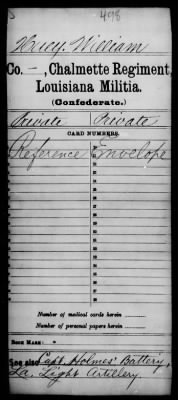 498
Hucy, William
Co. —, Chalmette Regiment,
Louisiana Militia.
(Confederate.)
Private Private
CARD NUMBERS.
Reference Envelope
Number of medical cards herein
Number of personal papers herein
BOOK MARK:
See also Capt. Holmes' Battery,
La. Light Artillery.